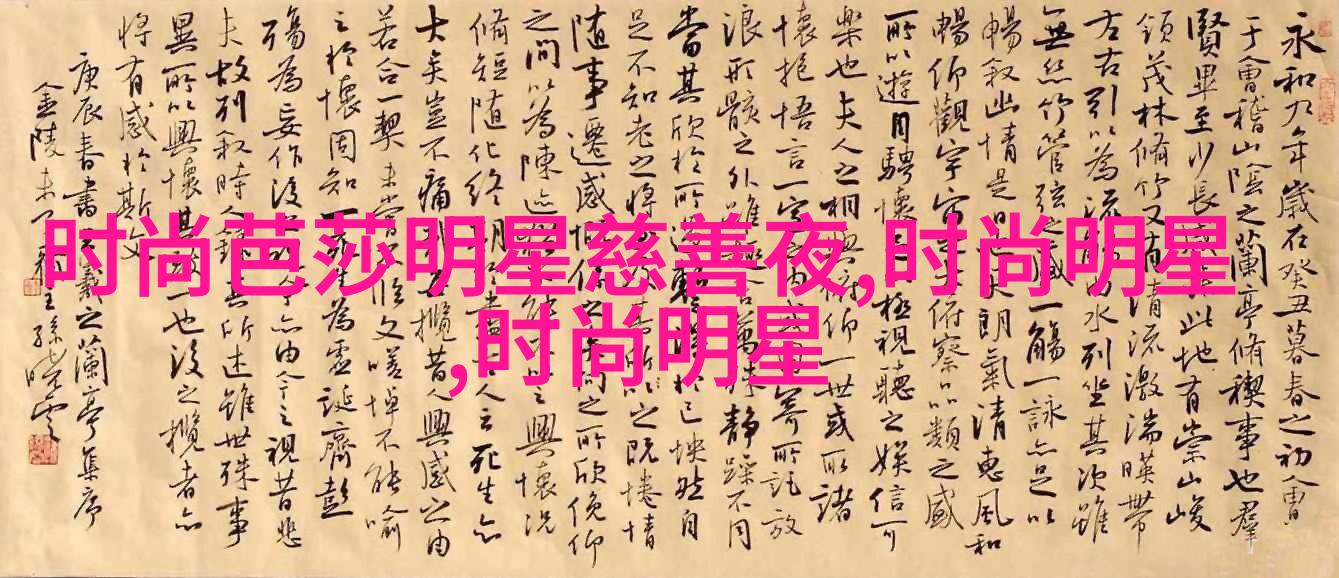 時尚芭莎明星慈善夜,时尚明星
,时尚明星
永和九年歲在癸丑暮春之初會
于會稽山陰之蘭亭脩禊事也羣
賢畢至少長咸集此地有崇山峻
領茂林脩竹又有清流激湍暎帶
左右引以為流觴曲水列坐其次雖
無絲竹管弦之盛一觴一詠亦足以
暢敘幽情是日也天朗氣清惠風和
暢仰觀宇宙之大俯察品類之盛
所以遊目騁懷足以極視聽之娛信可
樂也夫人之相與俯仰一世或取諸
懷抱悟言一室之內或因寄所託放
浪形骸之外雖趣舍萬殊靜躁不同
當其欣於所遇暫得於己怏然自
足不知老之將至及其所之既惓情
隨事遷感慨係之矣向之所欣俛仰
之間以為陳迹猶不能不以之興懷況
脩短隨化終期於盡古人云死生亦
大矣豈不痛哉每攬昔人興感之由
若合一契未嘗不臨文嗟悼不能喻
之於懷固知一死生為虛誕齊彭
殤為妄作後之視今亦由今之視昔悲
夫故列敘時人錄其所述雖世殊事
異所以興懷其致一也後之攬者亦
將有感於斯文
庚辰春書王羲之蘭亭集序
金陵王孫曉雲